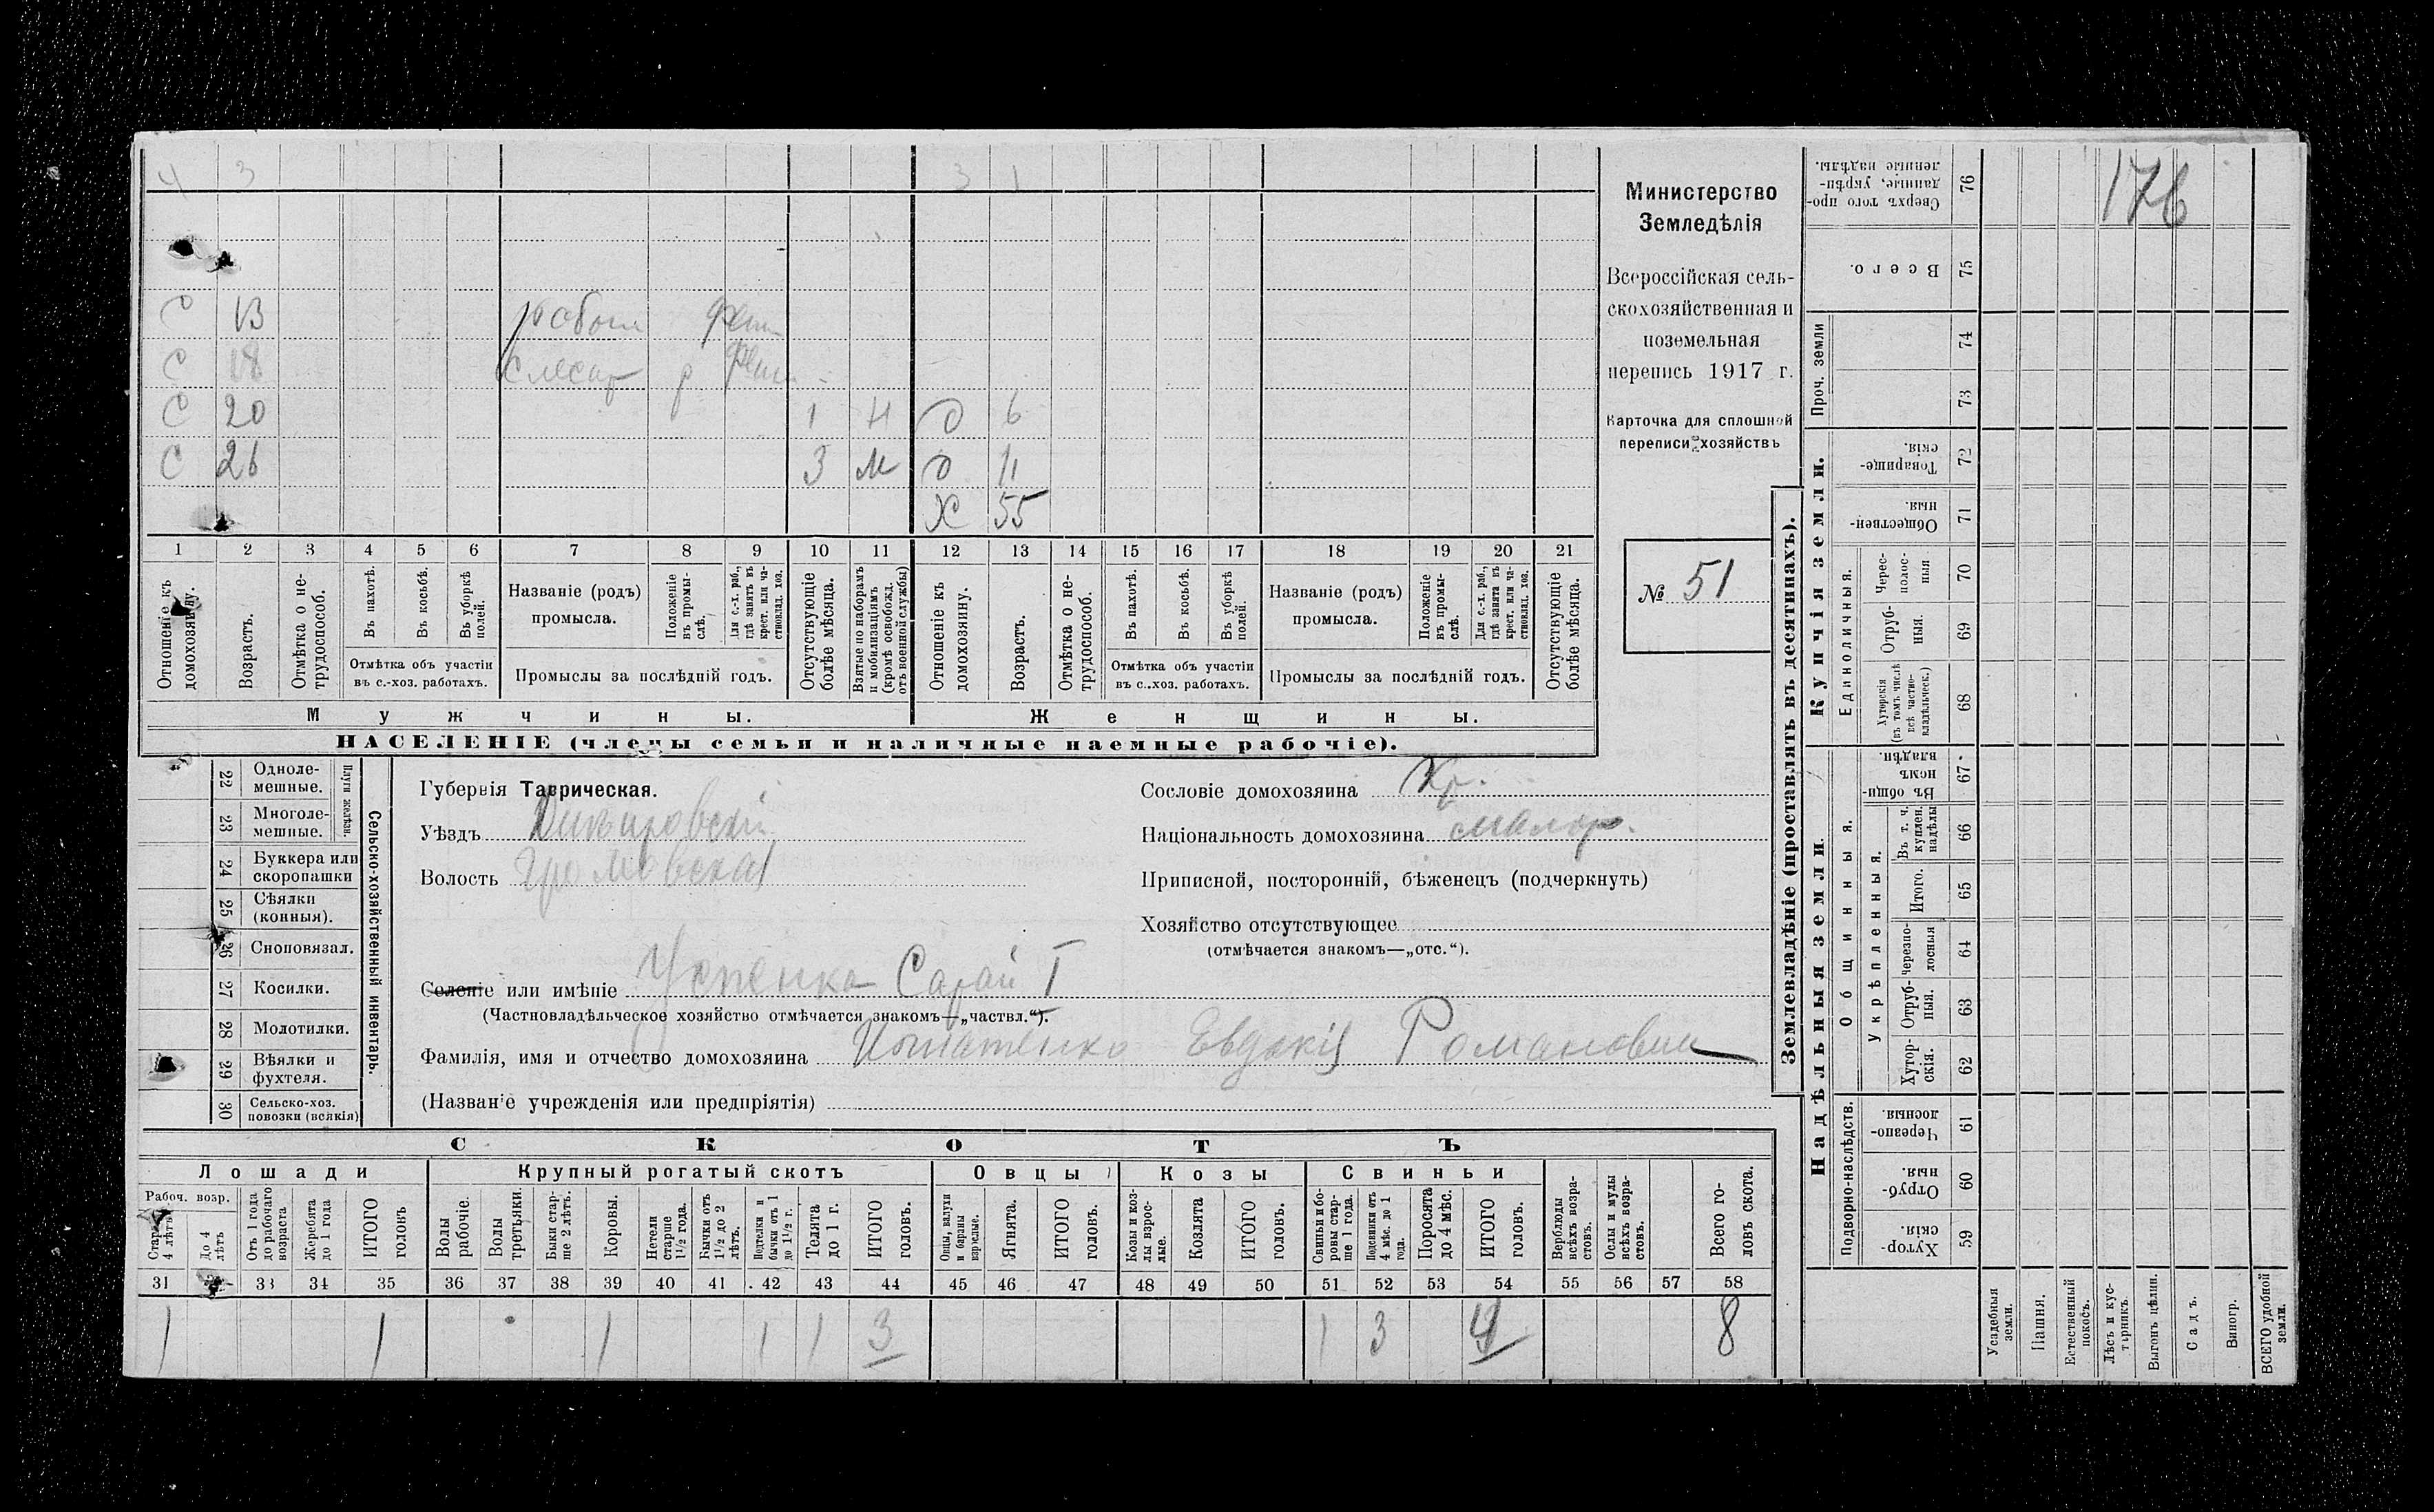 4 3 3 1
С 13 работ
С 18 слесар р
С 20 1 Н Д 6
С 26 3 М Д 11
Х 55
1 2 3 4 5 6 7 8 9 10 11 12 13 14 15 16 17 18 19 20 21
Отношеніе къ домохозяину.
Возрастъ.
Отмѣтка о нетрудоспособ.
Въ пахотѣ.
Въ косьбѣ.
Въ уборкѣ полей.
Отмѣтка объ участіи
въ с.-хоз. работахъ.
Названіе (родъ)
промысла.
Положеніе въ промыслѣ.
Для с.-х. раб., гдѣ занятъ въ крест. или частновлад. хоз.
Промыслы за послѣдній годъ.
Отсутствующіе болѣе мѣсяца.
Взятые по наборамъ и мобилизаціямъ (кромѣ освобожд. отъ военной службы)
Отношеніе къ домохозяину.
Возрастъ.
Отмѣтка о нетрудоспособ.
Въ пахотѣ.
Въ косьбѣ.
Въ уборкѣ полей.
Отмѣтка объ участіи
въ с.-хоз. работахъ.
Названіе (родъ)
промысла.
Положеніе въ промыслѣ.
Для с.-х. раб., гдѣ занята въ крест. или частновлад. хоз.
Промыслы за послѣдній годъ.
Отсутствующіе болѣе мѣсяца.
Мужчины.
Женщины.
НАСЕЛЕНІЕ (члены семьи и наличные наемные рабочіе).
Министерство
Земледѣлія
Всероссійская сель-
скохозяйственная и
поземельная
перепись 1917 г.
Карточка для сплошной
переписи хозяйствъ
№ 51
22 Одноле-
мешные.
23 Многоле-
мешные.
Плуги желѣзн.
24 Буккера или
скоропашки
25 Сѣялки
(конныя).
26 Сноповязал.
27 Косилки.
28 Молотилки.
29 Вѣялки и
фухтеля.
30 Сельско-хоз.
повозки (всякія)
Сельско-хозяйственный инвентарь.
Губернія Таврическая.
Уѣздъ Днѣпровскій
Волость Громовская
Селеніе или имѣніе Успенка Сарай I
(Частновладѣльческое хозяйство отмѣчается знакомъ—„частвл.“).
Фамилія, имя и отчество домохозяина Евдокія Романович
(Названіе учрежденія или предпріятія)
Сословіе домохозяина Кр.
Національность домохозяина малор.
Приписной, посторонній, бѣженецъ (подчеркнуть)
Хозяйство отсутствующее
(отмѣчается знакомъ—„отс.“).
СКОТЪ
Лошади Крупный рогатый скотъ Овцы Козы Свиньи
Рабоч. возр.
Старше 4 лѣтъ
До 4 лѣтъ
Отъ 1 года до рабочаго возраста
Жеребята до 1 года
ИТОГО головъ
Волы рабочіе.
Волы третьяки.
Быки старше 2 лѣтъ.
Коровы.
Нетели старше 1½ года.
Бычки отъ 1½ до 2 лѣтъ.
Подтелки и бычки отъ 1 до 1½ г.
Телята до 1 г.
ИТОГО головъ.
Овцы, валухи и бараны взрослые.
Ягнята.
ИТОГО головъ.
Козы и козлы взрослые.
Козлята
ИТОГО головъ.
Свиньи и боровы старше 1 года.
Подсвинки отъ 4 мѣс. до 1 года.
Поросята до 4 мѣс.
ИТОГО головъ.
Верблюды всѣхъ возрастовъ.
Ослы и мулы всѣхъ возрастовъ.
Всего головъ скота.
31 33 34 35 36 37 38 39 40 41 42 43 44 45 46 47 48 49 50 51 52 53 54 55 56 57 58
1 1 1 1 1 3 1 3 4 8
Землевладѣніе (проставлять въ десятинахъ).
Купчія земли.
Надѣльныя земли
Сверхъ того проданные, укрѣпленные надѣлы. 76
Всего. 75
Проч. земли 74 73
Товарищескія. 72
Общественныя. 71
Единоличныя.
Чересполосныя 70
Отрубныя. 69
Хуторскія (въ томъ числѣ всѣ частновладѣльческ.) 68
Общинныя.
Въ общиномъ владѣн. 67
Укрѣпленныя.
Въ т. ч. куплен. надѣлы 66
Итого. 65
Черезполосныя 64
Отрубныя. 63
Хуторскія. 62
Подворно-наслѣдств.
Черезполосныя. 61
Отрубныя. 60
Хуторскія. 59
Усадебныя земли.
Пашня.
Естественный покосъ.
Лѣсъ и кустарникъ.
Выгонъ цѣлин.
Садъ.
Виногр.
ВСЕГО удобной земли.
176